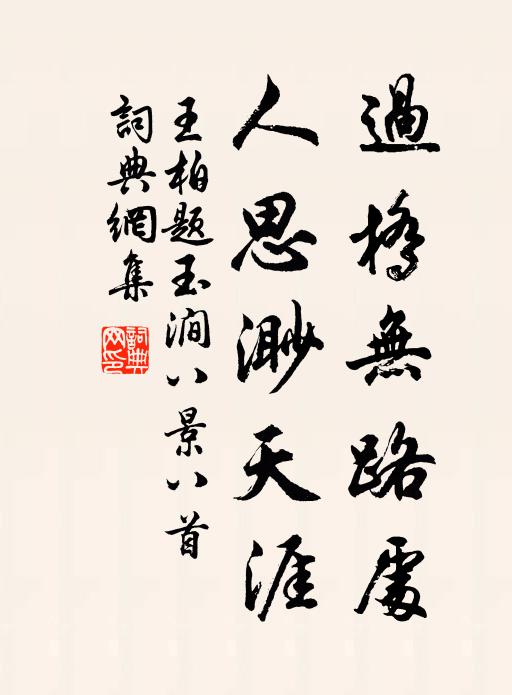 過橋無路處
人思渺天涯
王柏題玉澗八景八首
詞典網集
詞典網印